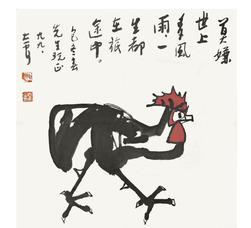 莫嫌
世上
多風
雨一
生都
在旅
途中
先生玩正
九九